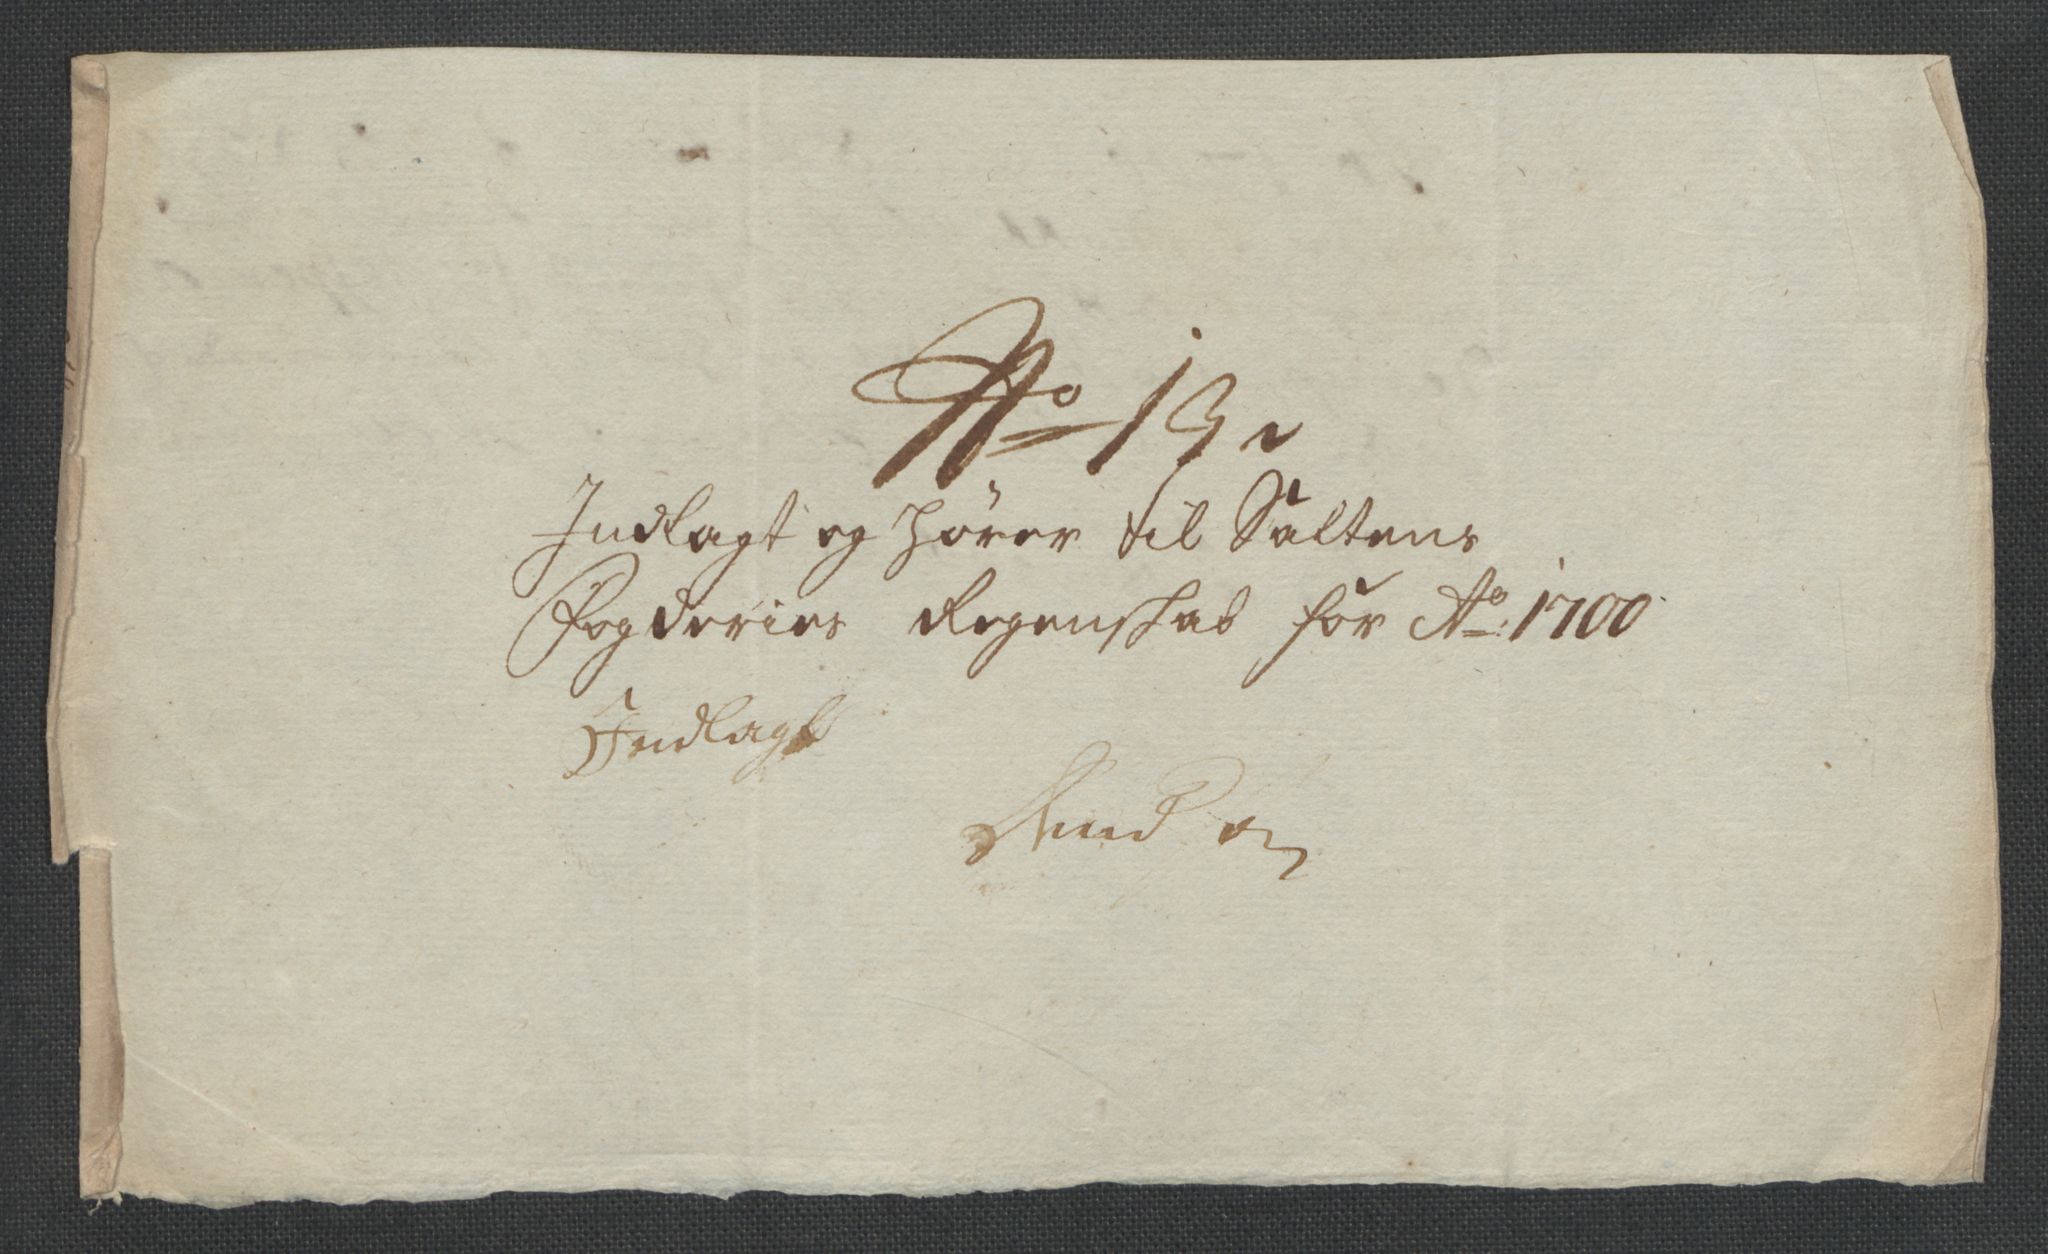 No 13
Indlagt og hører til Saltens
Fogderies Regenskab for Ao: 1700
Indlagt